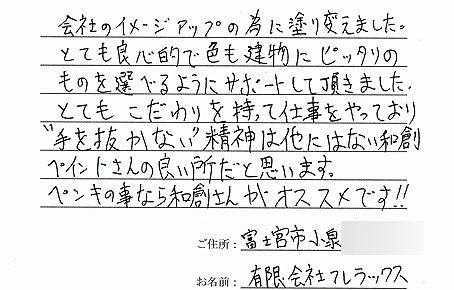 会社のイメージアップの為に塗り変えました。
とても良心的で色も建物にピッタリの
ものを選べるようにサポートして頂きました。
とてもこだわりを持って仕事をやっており
"手を抜かない"精神は他にはない和創
ペイントさんの良い所だと思います。
ペンキの事なら和創さんがオススメです!!
ご住所：富士宮市小泉
お名前：有限会社フレラックス